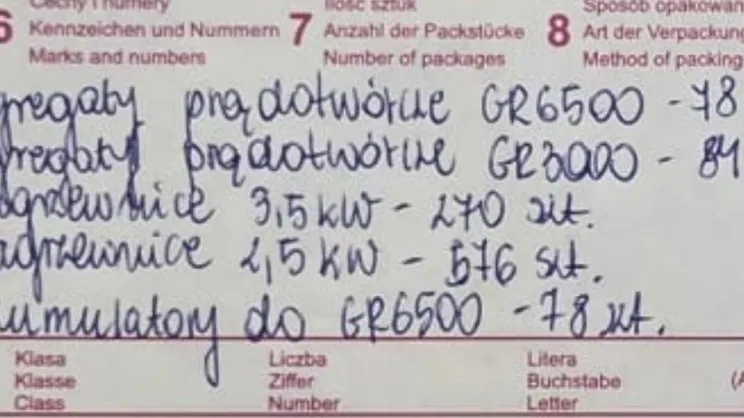 Cechy i numery Ilość sztuk Sposób opakowan
6 Kennzeichen und Nummern 7 Anzahl der Packstücke 8 Art der Verpackung
Marks and numbers Number of packages Method of packing
gregaty prądotwórcze GR6500 - 78
gregaty prądotwórcze GR3000 - 84
agrzewnice 3,5 kW - 270 szt.
agrzewnice 2,5 kW - 576 szt.
umulatory do GR6500 - 78 szt.
Klasa Liczba Litera
Klasse Ziffer Buchstabe (A
Class Number Letter